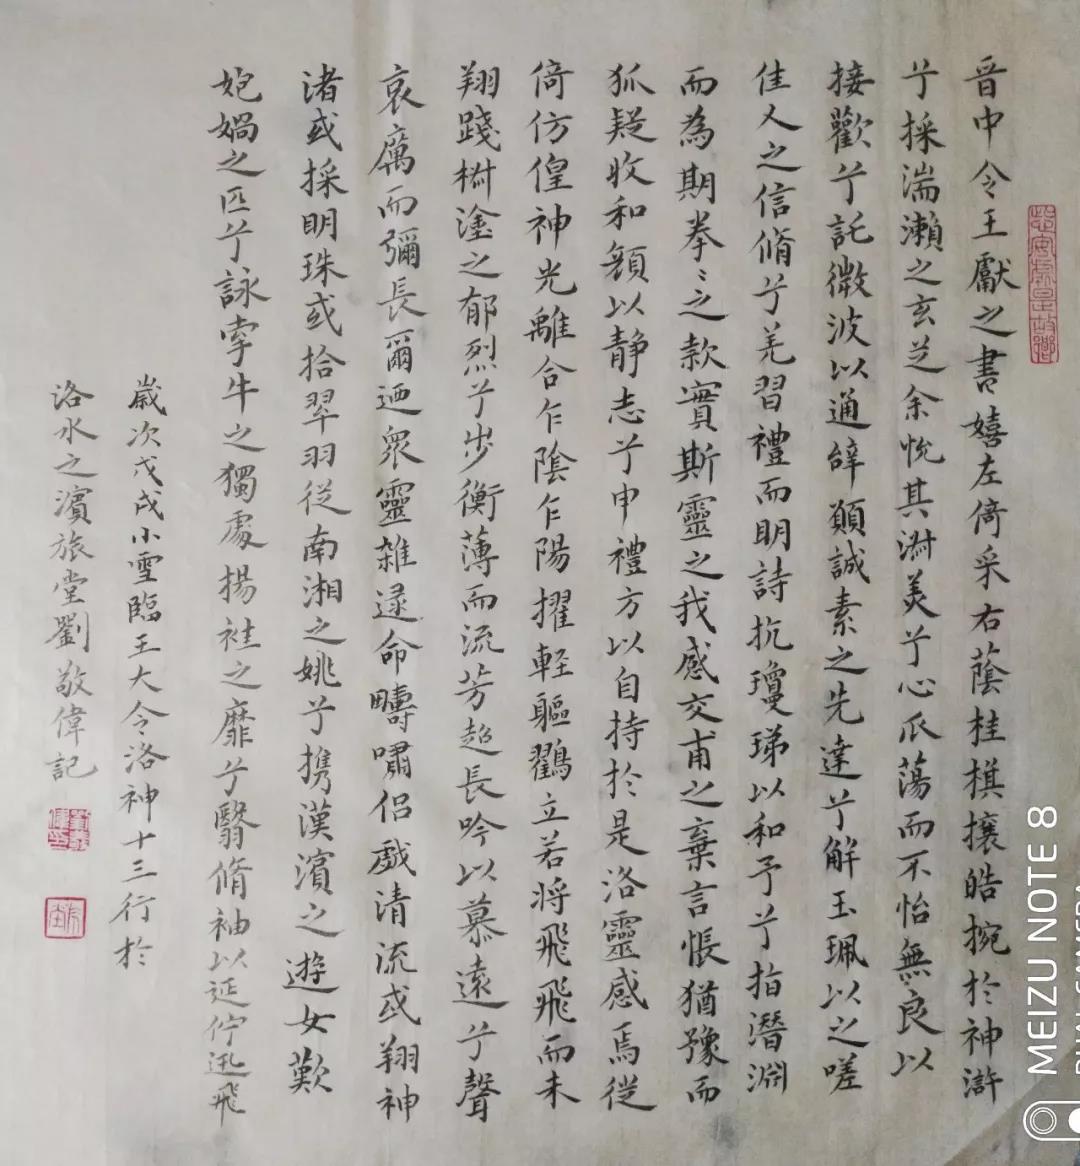 晋中令王獻之書嬉左倚采右蔭桂棋攘皓捥於神滸
兮採湍瀨之玄芝余悅其淑美兮心爪蕩而不怡無良以
接歡兮託微波以通辝願誠素之先達兮解玉珮以之嗟
佳人之信脩兮羌習禮而明詩抗瓊珶以和予兮指潛淵
而為期拳〻之款實斯靈之我感交甫之棄言悵猶豫而
狐疑收和顏以静志兮申禮方以自持於是洛靈感焉從
倚仿偟神光離合乍陰乍陽擢軽軀鸖立若将飛飛而未
翔踐椒塗之郁烈兮步衡薄而流芳超長吟以慕遠兮聲
哀厲而彌長爾迺衆靈雜遝命疇嘯侣戲清流或翔神
渚或採明珠或拾翠羽從南湘之姚兮携漢濱之遊女歎
媿媧之匹兮詠牽牛之獨處揚袿之靡兮翳脩袖以延佇迅飛
歲次戊戌小雪臨王大令洛神十三行於
洛水之濱旅堂劉敬偉記
MEIZU NOTE 8